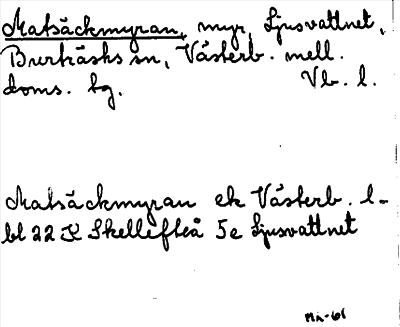 Matsäckmyran, myr, Ljusvattnet,
Burträsks sn, Västerb. mell.
doms. bg. Vb. l.
Matsäckmyran ek Västerb. l-
bl 22 K Skellefteå 5e Ljusvattnet